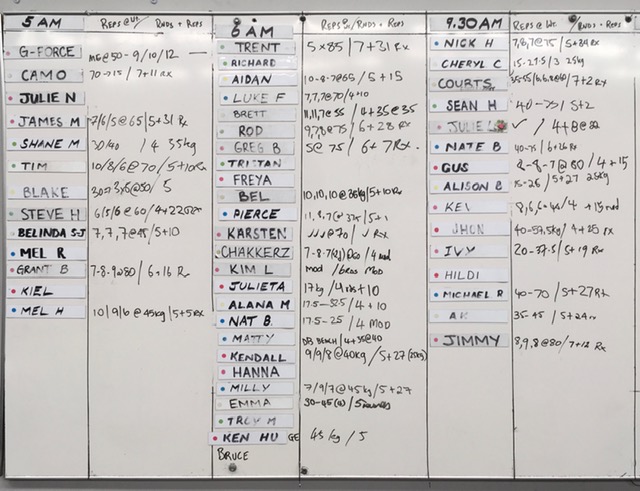 5 AM REPS @ Wt / RNDS + REPS
G-FORCE @50 - 9/10/12
CAMO 70 / 7+11 RX
JULIE N
JAMES M 7/6/5@65/5+31 Rx
SHANE M 30/40 / 4 35kg
TIM 10/8/6@70/5+10Rx
BLAKE / 5
STEVE H 6/5/6@60/
BELINDA S-J 7,7,7@45/5+10
MEL R
GRANT B 7-8-9@80/6+16 Rx
KIEL
MEL H 10/9/6@45kg/5+5RX
6 AM REPS / RNDS + REPS
TRENT 5x85/7+31 Rx
RICHARD
AIDAN 10-8-7@65/5+15
LUKE F 7,7,7@70/4+10
BRETT 11,11,7@55/4+35@35
ROD 9,7,8@75/6+28 RX
GREG B 5@75/6+7Rx.
TRISTAN
FREYA
BEL 10,10,10@35kg/5+10Rx
PIERCE / 5+1
KARSTEN ✓✓✓@70/✓RX
CHAKKERZ / 4 mod
KIM L mod / MOD
JULIETA 17kg / +10
ALANA M 17.5-32.5/4+10
NAT B. 17.5-25/4 MOD
MATTY DB BENCH/4+35@40
KENDALL 9/9/8@40kg/5+27(25kg)
HANNA
MILLY 7/9/7@45kg/5+27
EMMA 30-45 / 5 rounds
TROY M
KEN HU GE 45kg/5
BRUCE
9.30AM REPS @ Wt / RNDS + REPS
NICK H 7,8,7@75/5+31 Rx
CHERYL C 25kg
COURTS /7+2 Rx
SEAN H 40-75/5+2
JULIE ✓ / 4+8@32
NATE B 40-75/6+26 Rx
GUS 8-8-7@60/4+15
ALISON B 15-26/5+27 25kg
KEV / 4 +15 mod
JHON 40-57,5kg/4+25 RX
IVY 20-37.5/5+19 Rx
HILDI
MICHAEL R 40-70/5+27Rx
AK 35-45/5+24rx
JIMMY 8,9,8@80/7+18 Rx